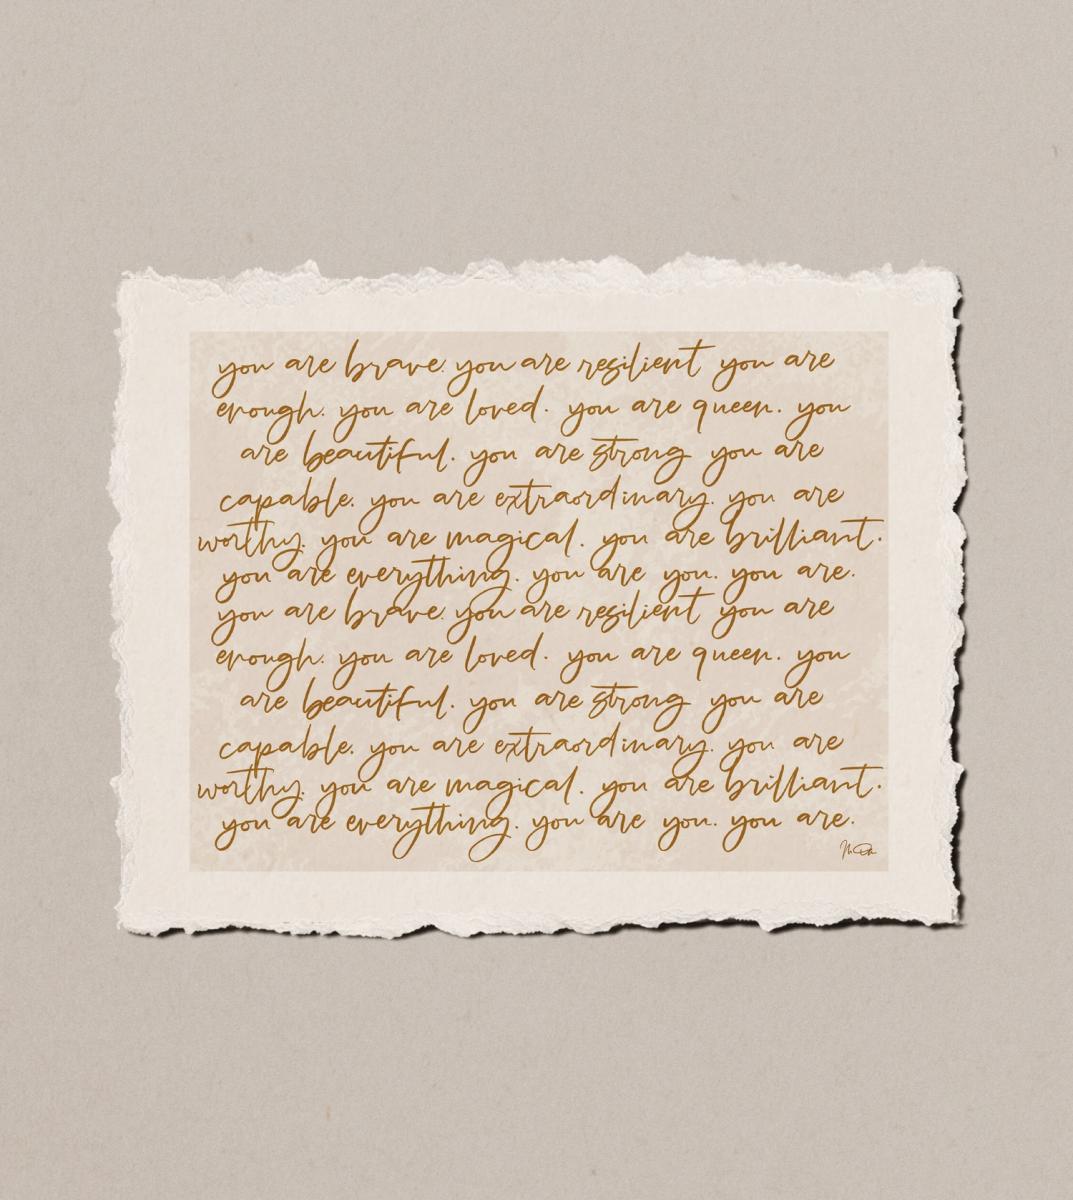 you are brave. you are resilient you are
enough. you are loved. you are queen. you
are beautiful. you are strong you are
capable. you are extraordinary. you are
worthy. you are magical. you are brilliant.
you are everything. you are you. you are.
you are brave. you are resilient you are
enough. you are loved. you are queen. you
are beautiful. you are strong you are
capable. you are extraordinary. you are
worthy. you are magical. you are brilliant.
you are everything. you are you. you are.